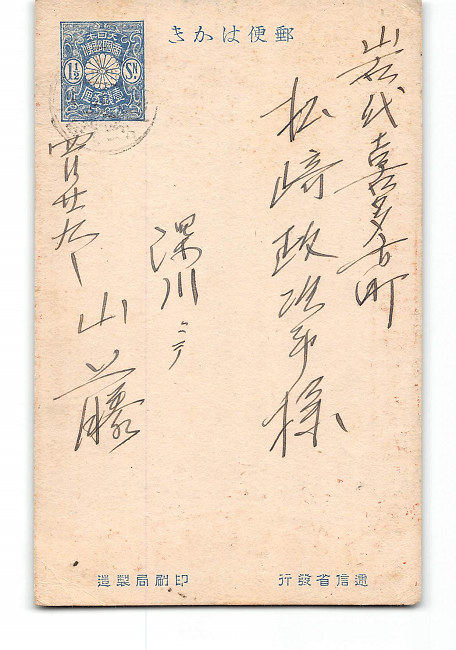 郵便はかき
大日本
帝國郵便
1½ Sn.
壹錢五厘
岩代喜多方町
松崎政次郎様
深川ニテ
山藤
四月廿九日
遞信省發行
印刷局製造